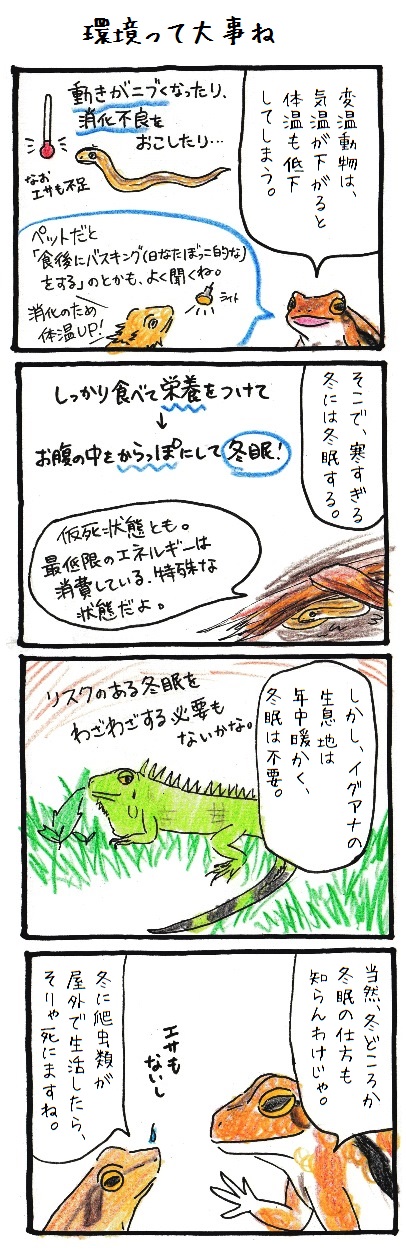 環境って大事ね
変温動物は、
気温が下がると
体温も低下
してしまう。
動きがニブくなったり、
消化不良を
おこしたり…
なお
エサも不足
ペットだと
「食後にバスキング(日なたぼっこ的な)
をする」のとかも、よく聞くね。
消化のため
体温UP!
ライト
そこで、寒すぎる
冬には冬眠する。
しっかり食べて栄養をつけて
↓
お腹の中をからっぽにして冬眠!
仮死状態とも。
最低限のエネルギーは
消費している、特殊な
状態だよ。
しかし、イグアナの
生息地は
年中暖かく、
冬眠は不要。
リスクのある冬眠を
わざわざする必要も
ないかな。
当然、冬どころか
冬眠の仕方も
知らんわけじゃ。
エサも
ないし
冬に爬虫類が
屋外で生活したら、
そりゃ死にますね。